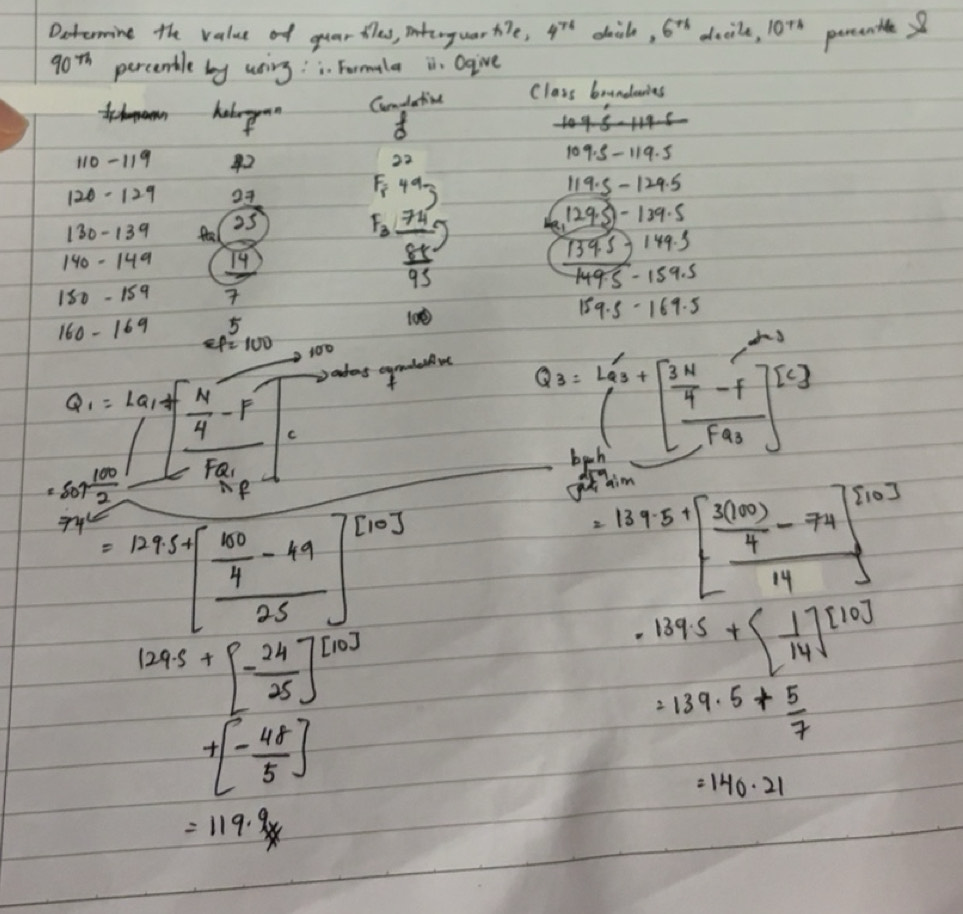 Determine the value of quartiles, interquartile, 4th decile, 6th decile, 10th percentile &
90th percentile by using: i. Formula ii. Ogive
f Cumulative f Class boundaries
109.5 - 119.5
110 - 119 22 22 109.5 - 119.5
120 - 129 27 F1 49 119.5 - 129.5
130 - 139 25 F3 74 129.5 - 139.5
140 - 149 14 88 139.5 - 149.5
150 - 159 7 95 149.5 - 159.5
160 - 169 5 100 159.5 - 169.5
Σf = 100
→ 100
→ atas cumulative f
Q1 = LQ1 + [N/4 - F / FQ1] c
Q3 = LQ3 + [3N/4 - F / FQ3] [c]
atas
= 100/2
74
= 129.5 + [100/4 - 49 / 25] [10]
= 139.5 + [3(100)/4 - 74 / 14] [10]
129.5 + [-24/25] [10]
= 139.5 + [1/14] [10]
+ [-48/5]
= 139.5 + 5/7
= 119.9
= 140.21